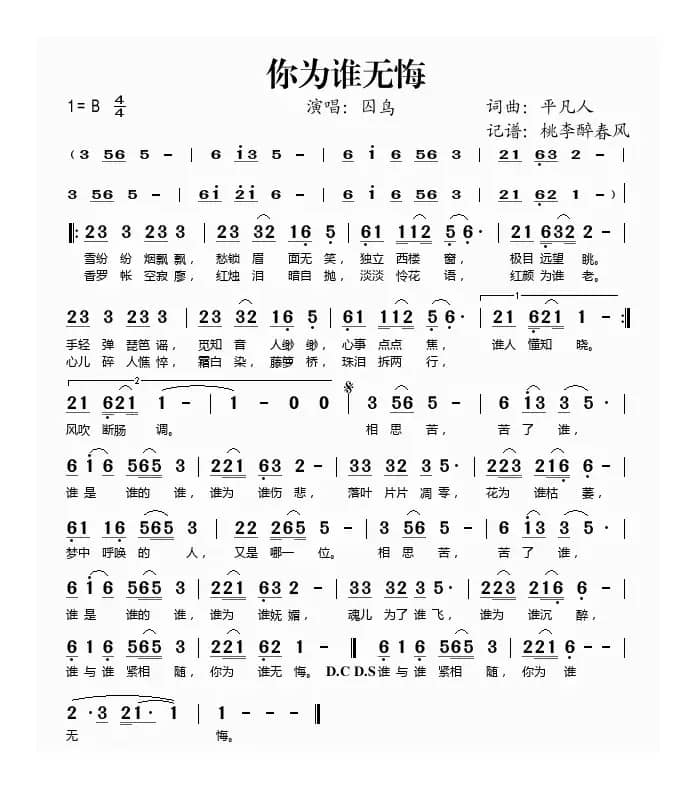 你为谁无悔
1= B 4/4 演唱：囚鸟 词曲：平凡人
记谱：桃李醉春风
( 3 56 5 - | 6 i3 5 - | 6 i 6 56 3 | 21 63 2 - |
3 56 5 - | 6i 2i 6 - | 6 i 6 56 3 | 21 62 1 - ) |
‖: 23 3 23 3 | 23 32 16 5 | 61 112 5 6· | 21 632 2 - |
雪纷 纷 烟飘 飘， 愁锁 眉 面无 笑， 独立 西楼 窗， 极目 远望 眺。
香罗 帐 空寂 廖， 红烛 泪 暗自 抛， 淡淡 怜花 语， 红颜 为谁 老。
23 3 23 3 | 23 32 16 5 | 61 112 5 6· | 1 21 621 1 - :‖
手轻 弹 琵笆 谣， 觅知 音 人缈 缈， 心事 点点 焦， 谁人 懂知 晓。
心儿 碎 人憔 悴， 霜白 染， 藤萝 桥， 珠泪 拆两 行，
2 21 621 1 - | 1 - 0 0 | 3 56 5 - | 6 i3 3 5· |
风吹 断肠 调。 相思 苦， 苦了 谁，
6 i 6 565 3 | 221 63 2 - | 33 32 3 5· | 223 216 6 - |
谁是 谁的 谁， 谁为 谁伤 悲， 落叶 片片 凋零， 花为 谁枯 萎，
61 16 565 3 | 22 265 5 - | 3 56 5 - | 6 i3 3 5· |
梦中 呼唤 的 人， 又是 哪一 位。 相思 苦， 苦了 谁，
6 i 6 565 3 | 221 63 2 - | 33 32 3 5· | 223 216 6 - |
谁是 谁的 谁， 谁为 谁妩 媚， 魂儿 为了 谁飞， 谁为 谁沉 醉，
6 1 6 565 3 | 221 62 1 - ‖ 6 1 6 565 3 | 221 6 - - |
谁与谁 紧相 随， 你为 谁无 悔。 D.C D.S 谁与谁 紧相 随， 你为 谁
2 · 3 21· 1 | 1 - - - ‖
无 悔。